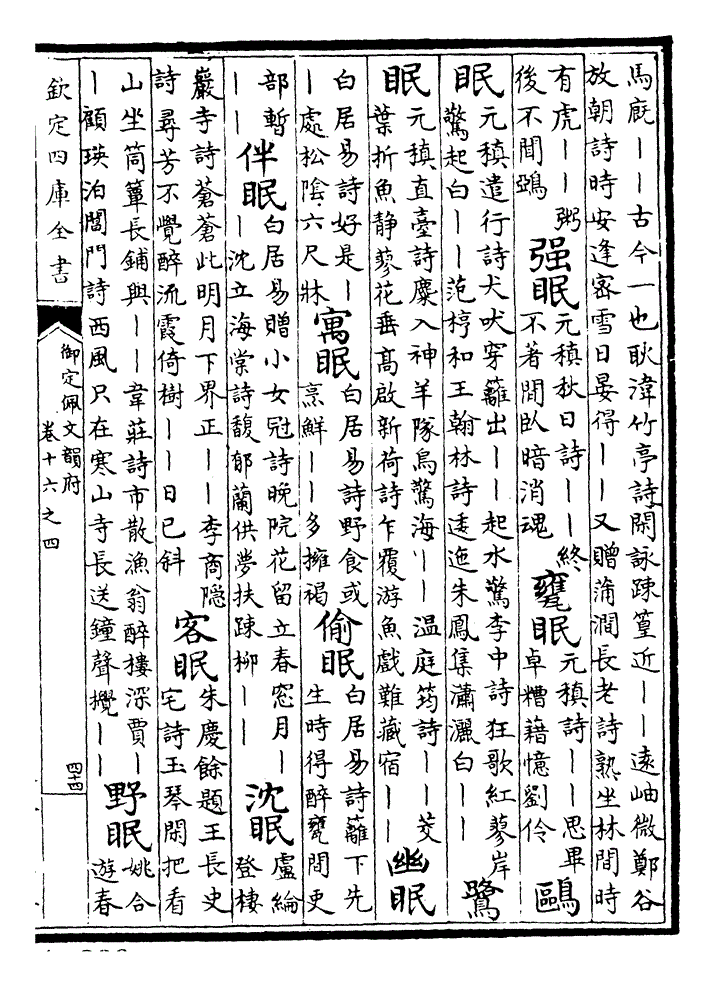 馬廐丨丨古今一也耿湋竹亭詩閑詠踈篁近丨丨遠岫微鄭谷
放朝詩時安逢密雪日晏得丨丨又贈蒲澗長老詩熟坐林間時
有虎丨丨粥
後不聞鵶
强眠
元稹秋日詩丨丨終
不著閒臥暗消魂
甕眠
元稹詩丨丨思畢
卓糟藉憶劉伶
鷗
眠
元稹遣行詩犬吠穿籬出丨丨起水驚李中詩狂歌紅蓼岸
驚起白丨丨范梈和王翰林詩逶迤朱鳳集瀟灑白丨丨
鷺
眠
元稹直臺詩麋入神羊隊烏驚海丨丨温庭筠詩丨丨茭
葉折魚静蓼花垂高啟新荷詩乍覆游魚戲難藏宿丨丨
幽眠
白居易詩好是丨
丨處松陰六尺牀
寓眠
白居易詩野食或
烹鮮丨丨多擁褐
偷眠
白居易詩籬下先
生時得醉甕間吏
部暫
丨丨
伴眠
白居易贈小女冠詩晚院花留立春窓月丨
丨沈立海棠詩馥郁蘭供夢扶踈柳丨丨
沈眠
盧綸
登棲
巖寺詩蒼蒼此明月下界正丨丨李商隠
詩尋芳不覺醉流霞倚樹丨丨日已斜
客眠
朱慶餘題王長史
宅詩玉琴閑把看
山坐筒簟長鋪興丨丨韋莊詩市散漁翁醉樓深賈丨
丨顧瑛泊閶門詩西風只在寒山寺長送鐘聲攪丨丨
野眠
姚合
遊春
欽定四庫全書
御定佩文韻府
卷十六之四
四十四